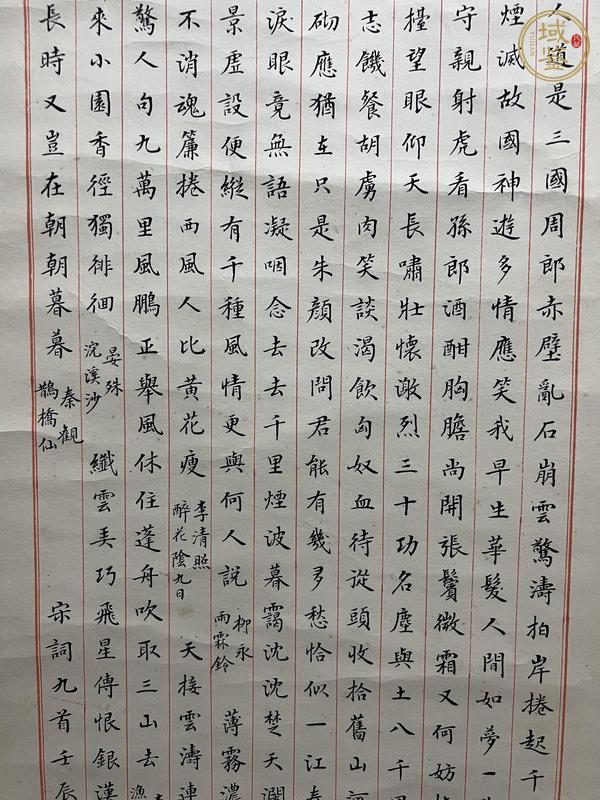 人道是三國周郎赤壁亂石崩雲驚濤拍岸捲起千
煙滅故國神遊多情應笑我早生華髮人間如夢一
守親射虎看孫郎酒酣胸膽尚開張鬢微霜又何妨
檯望眼仰天長嘯壯懷激烈三十功名塵與土八千里
志饑餐胡虜肉笑談渴飲匈奴血待從頭收拾舊山河
砌應猶在只是朱顏改問君能有幾多愁恰似一江春
淚眼竟無語凝咽念去去千里煙波暮靄沈沈楚天濶
景虛設便縱有千種風情更與何人說 柳永 雨霖鈴 薄霧濃
不消魂簾捲西風人比黃花瘦 李清照 醉花陰九日 天接雲濤連
驚人句九萬里風鵬正舉風休住蓬舟吹取三山去 漁
來小園香徑獨徘徊 晏殊 浣溪沙 纖雲弄巧飛星傳恨銀漢
長時又豈在朝朝暮暮 秦觀 鵲橋仙 宋詞九首壬辰
域鑒